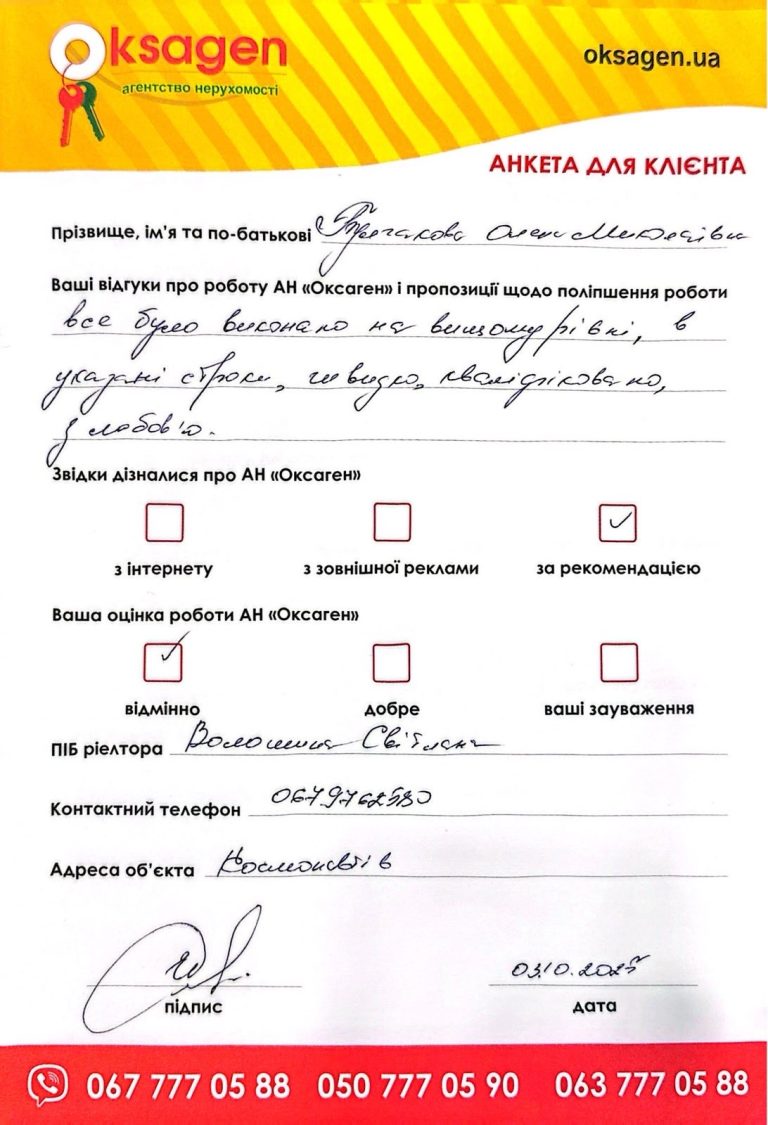 Oksagen
агентство нерухомості
oksagen.ua
АНКЕТА ДЛЯ КЛІЄНТА
Прізвище, ім'я та по-батькові Олена Миколаївна
Ваші відгуки про роботу АН «Оксаген» і пропозиції щодо поліпшення роботи
все було виконано на вищому рівні, в
указані строки, швидко, кваліфіковано,
з любов'ю.
Звідки дізналися про АН «Оксаген»
з інтернету з зовнішної реклами за рекомендацією
Ваша оцінка роботи АН «Оксаген»
відмінно добре ваші зауваження
ПІБ ріелтора Волошина Світлана
Контактний телефон 0679762580
Адреса об'єкта Космонавтів
03.10.2025
підпис дата
067 777 05 88 050 777 05 90 063 777 05 88